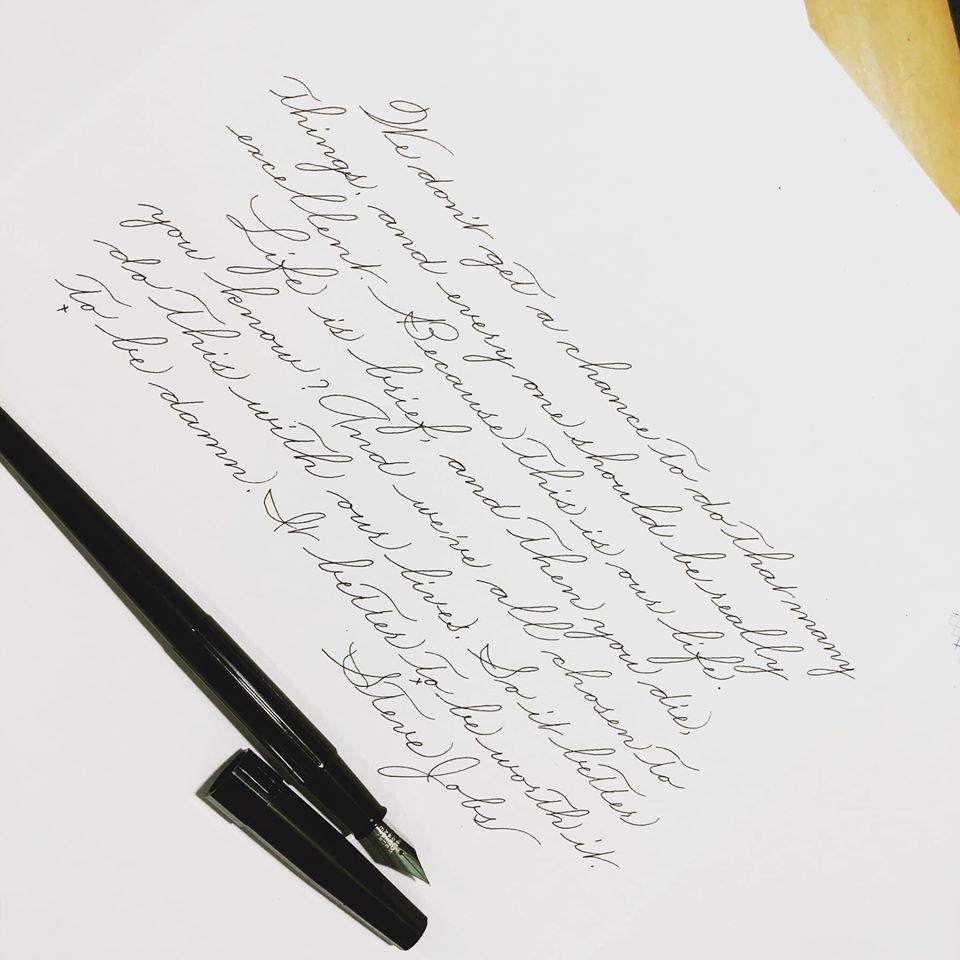 We don't get a chance to do that many
things, and every one should be really
excellent. Because this is our life.
Life is brief, and then you die,
you know? And we've all chosen to
do this with our lives. So it better
to be damn. It better to be worth it.
Steve Jobs